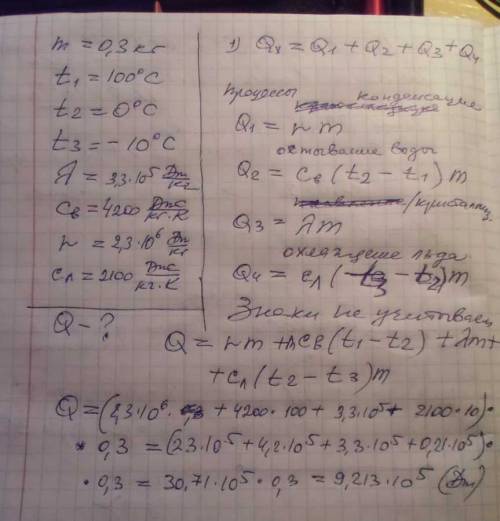 m = 0,3 кг
t₁ = 100°C
t₂ = 0°C
t₃ = - 10°C
λ = 3,3·10⁵ Дж/кг
cв = 4200 Дж/кг·К
r = 2,3·10⁶ Дж/кг
cл = 2100 Дж/кг·К
Q - ?
1) Q = Q₁ + Q₂ + Q₃ + Q₄
Процессы
конденсация
Q₁ = r m
остывание воды
Q₂ = cв (t₂ - t₁) m
/кристаллиз.
Q₃ = λm
охлаждение льда
Q₄ = cл (t₃ - t₂) m
Знаки не учитываем
Q = r m + mcв (t₁ - t₂) + λm +
+ cл (t₂ - t₃) m
Q = (2,3·10⁶ + 4200·100 + 3,3·10⁵ + 2100·10)·
* 0,3 = (23·10⁵ + 4,2·10⁵ + 3,3·10⁵ + 0,21·10⁵)·
· 0,3 = 30,71·10⁵ · 0,3 = 9,213·10⁵ (Дж)